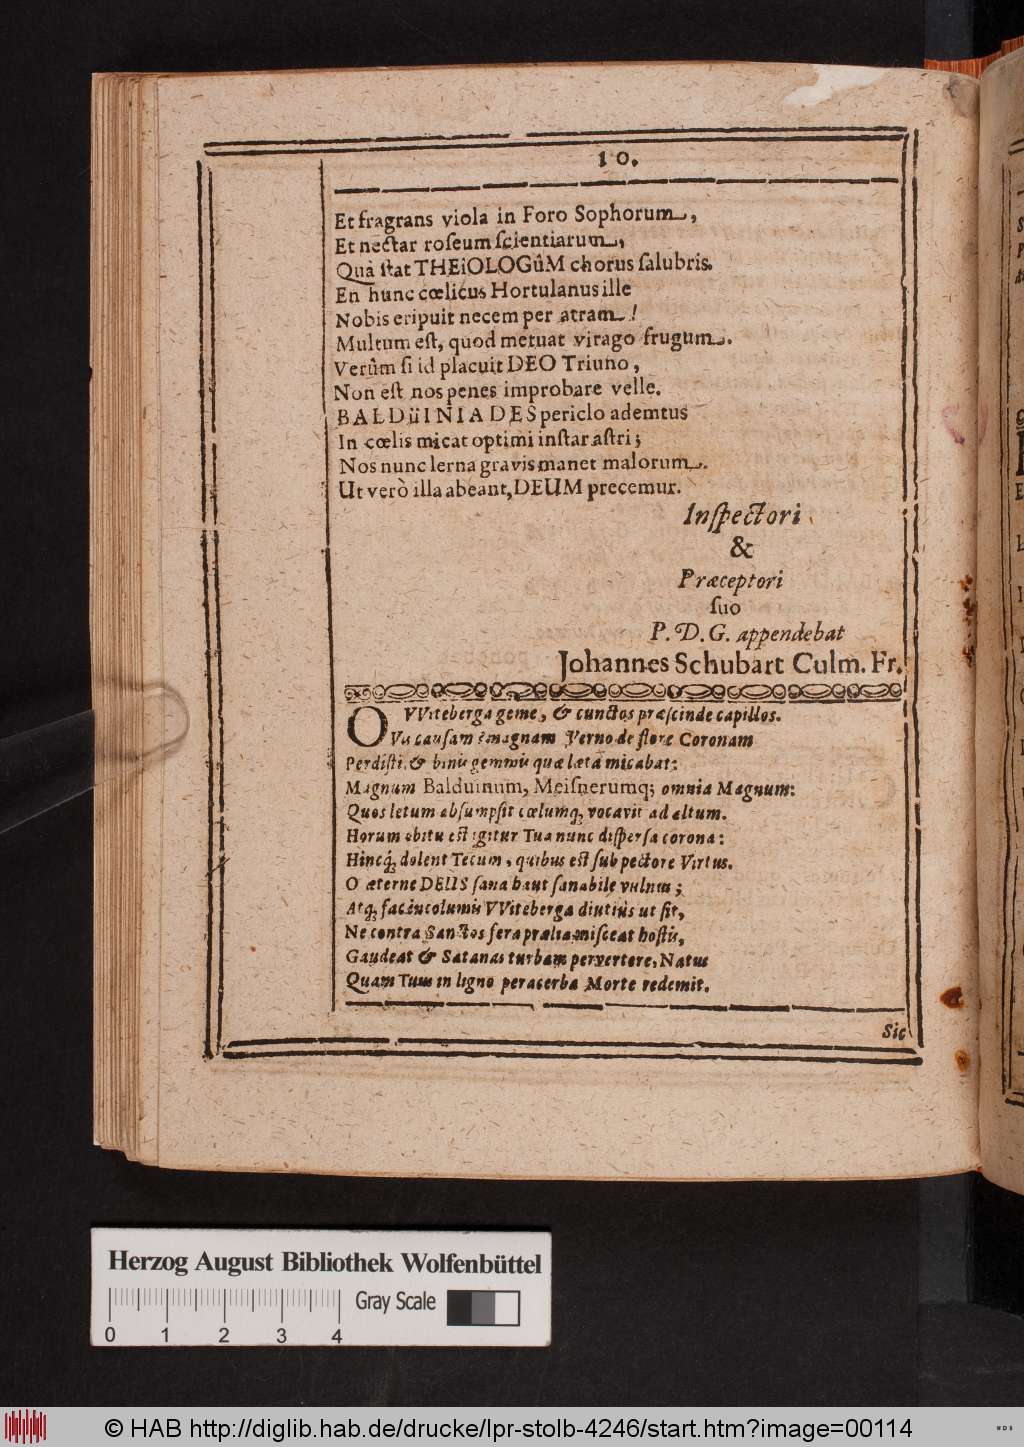 10.
Et fragrans viola in Foro Sophorum,
Et nectar roſeum ſcientiarum,
Quà ſtat THEiOLOGûM chorus ſalubris.
En hunc cœlicus Hortulanus ille
Nobis eripuit necem per atram!
Multum eſt, quod metuat virago frugum.
Verûm ſi id placuit DEO Triuno,
Non eſt nos penes improbare velle.
BALDüINIADES periclo ademtus
In cœlis micat optimi inſtar aſtri;
Nos nunc lerna gravis manet malorum.
Ut verò illa abeant, DEUM precemur.
Inſpectori
&
Præceptori
ſuo
P. D. G. appendebat
Johannes Schubart Culm. Fr.
O VViteberga geme, & cunctos præſcinde capillos.
Va cauſam magnam Verno de flore Coronam
Perdiſti, & binis gemmis quæ læta micabat:
Magnum Balduinum, Meiſnerumq; omnia Magnum:
Quos letum abſumpſit cœlumq, vocavit ad altum.
Horum obitu eſt igitur Tua nunc diſperſa corona:
Hincq, dolent Tecum, quibus eſt ſub pectore Virtus.
O æterne DEUS ſana haut ſanabile vulnus;
Atq, fac incolumis VViteberga diutiùs ut ſit,
Ne contra Sanctos fera prælia miſceat hoſtis,
Gaudeat & Satanas turbam pervertere, Natus
Quam Tuus in ligno peracerba Morte redemit.
Sic
Herzog August Bibliothek Wolfenbüttel
Gray Scale
0 1 2 3 4
© HAB http://diglib.hab.de/drucke/lpr-stolb-4246/start.htm?image=00114